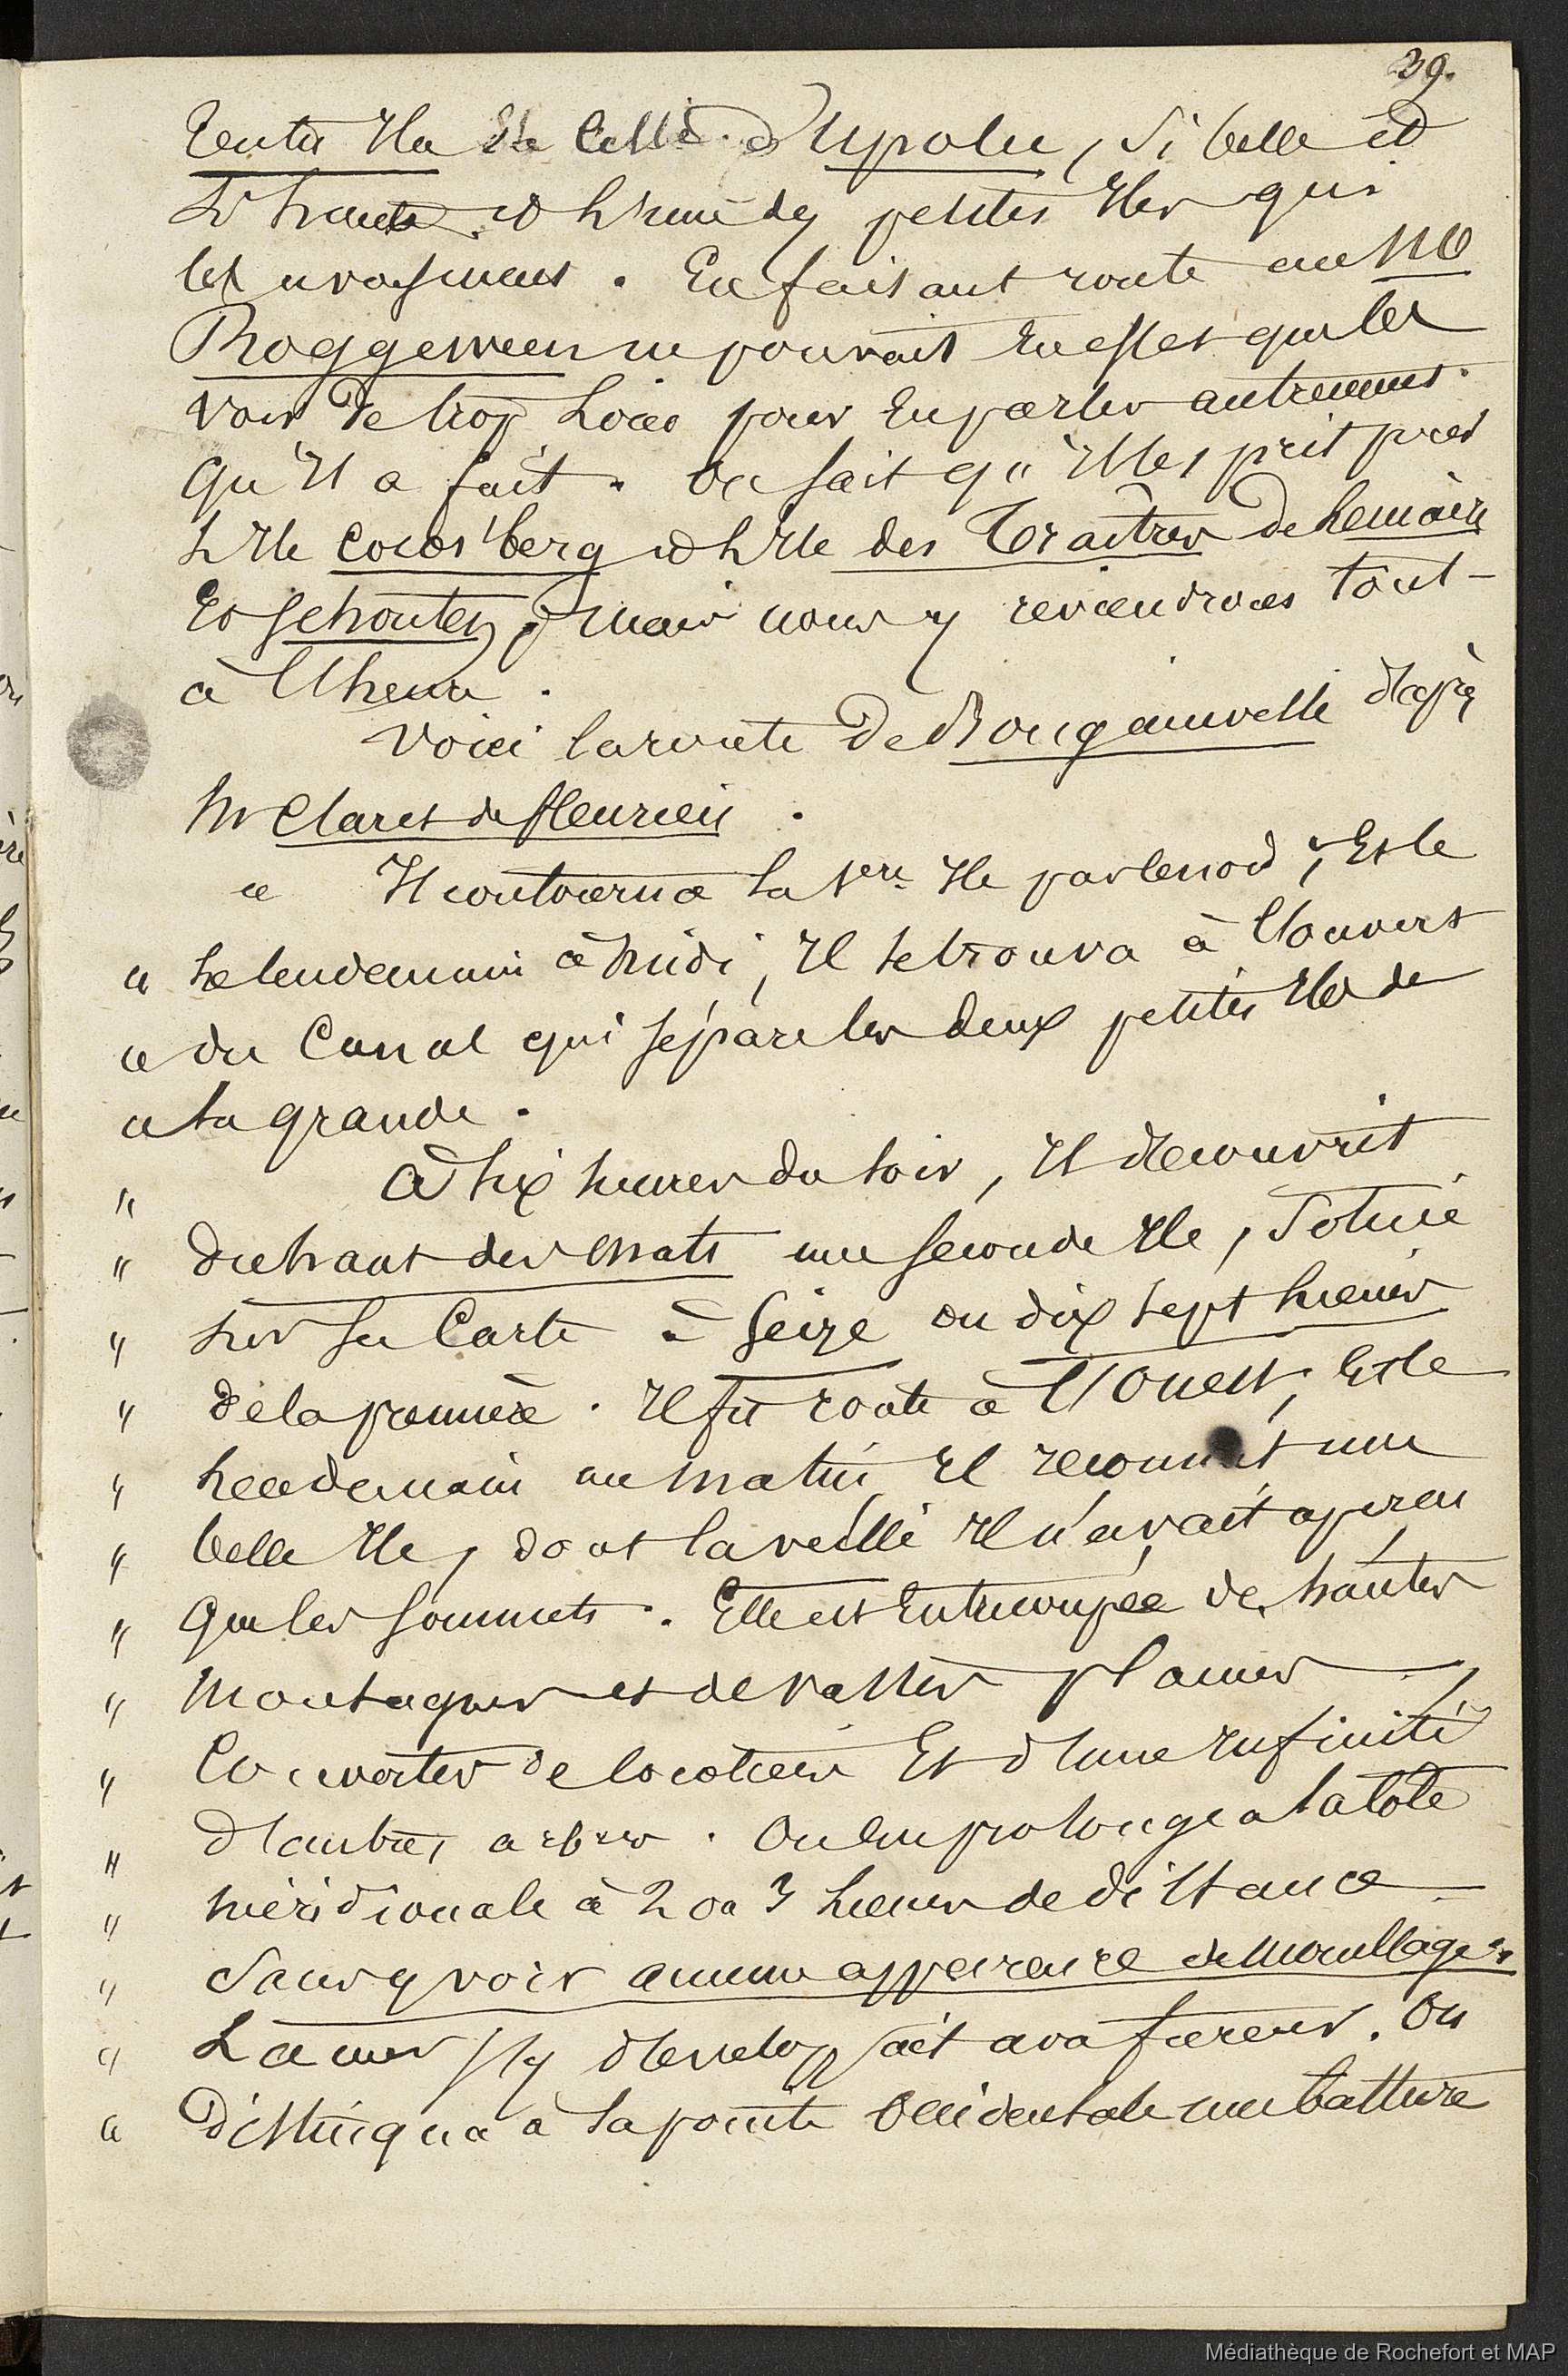 39.
toutu Ila Et Celle d'Upolu, Si belle et
Si haute et l'une des petites Iles qui
les avoisinent. En faisant route au NO
Roggeween ne pouvait En effet que les
voir de trop Loin pour En parler autrement
qu'Il a fait. On sait qu'Il les prit pour
L'Ile Cocos'berg et L'Ile des Traitres de Lemaire
Et Schouten; mais nous y reviendrons tout-
à l'heure.
Voici la route de Bougainville d'après
Mr Claret de fleurieu.
« Il contourna la 1ere Ile par le nord; Et le
« Le lendemain à midi, Il se trouva à l'ouvert
« du Canal qui sépare les deux petites Iles de
« La grande.
" à Six heures du soir, Il découvrit
" du haut des mats une seconde Ile, Située
" sur sa Carte à Seize ou dix sept lieues
" de la première. Il fit route à l'Ouest, Et le
" Lendemain au matin Il reconnut une
" belle Ile, dont la veille Il n'avait aperçu
" que les Sommets. Elle est Entrecoupée de hautes
" Montagnes et de vastes plaines
" Couvertes de Cocotiers Et d'une Infinité
" d'autres arbres. On En prolongea la Côte
" méridionale à 2 ou 3 Lieues de distance
" Sans y voir aucune apparence de Mouillage;
" La mer s'y développait avec fureur. On
« distingua à la pointe Occidentale une batture
Médiathèque de Rochefort et MAP